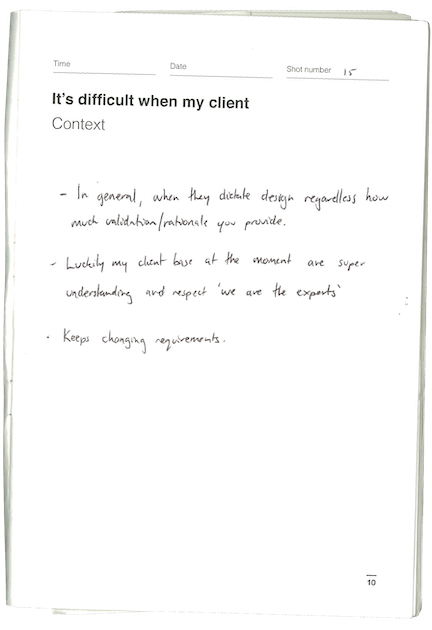 Time Date Shot number 15
It's difficult when my client
Context
- In general, when they dictate design regardless how
much validation/rationale you provide.
- Luckily my client base at the moment are super
understanding and respect 'we are the experts'
- Keeps changing requirements.
10